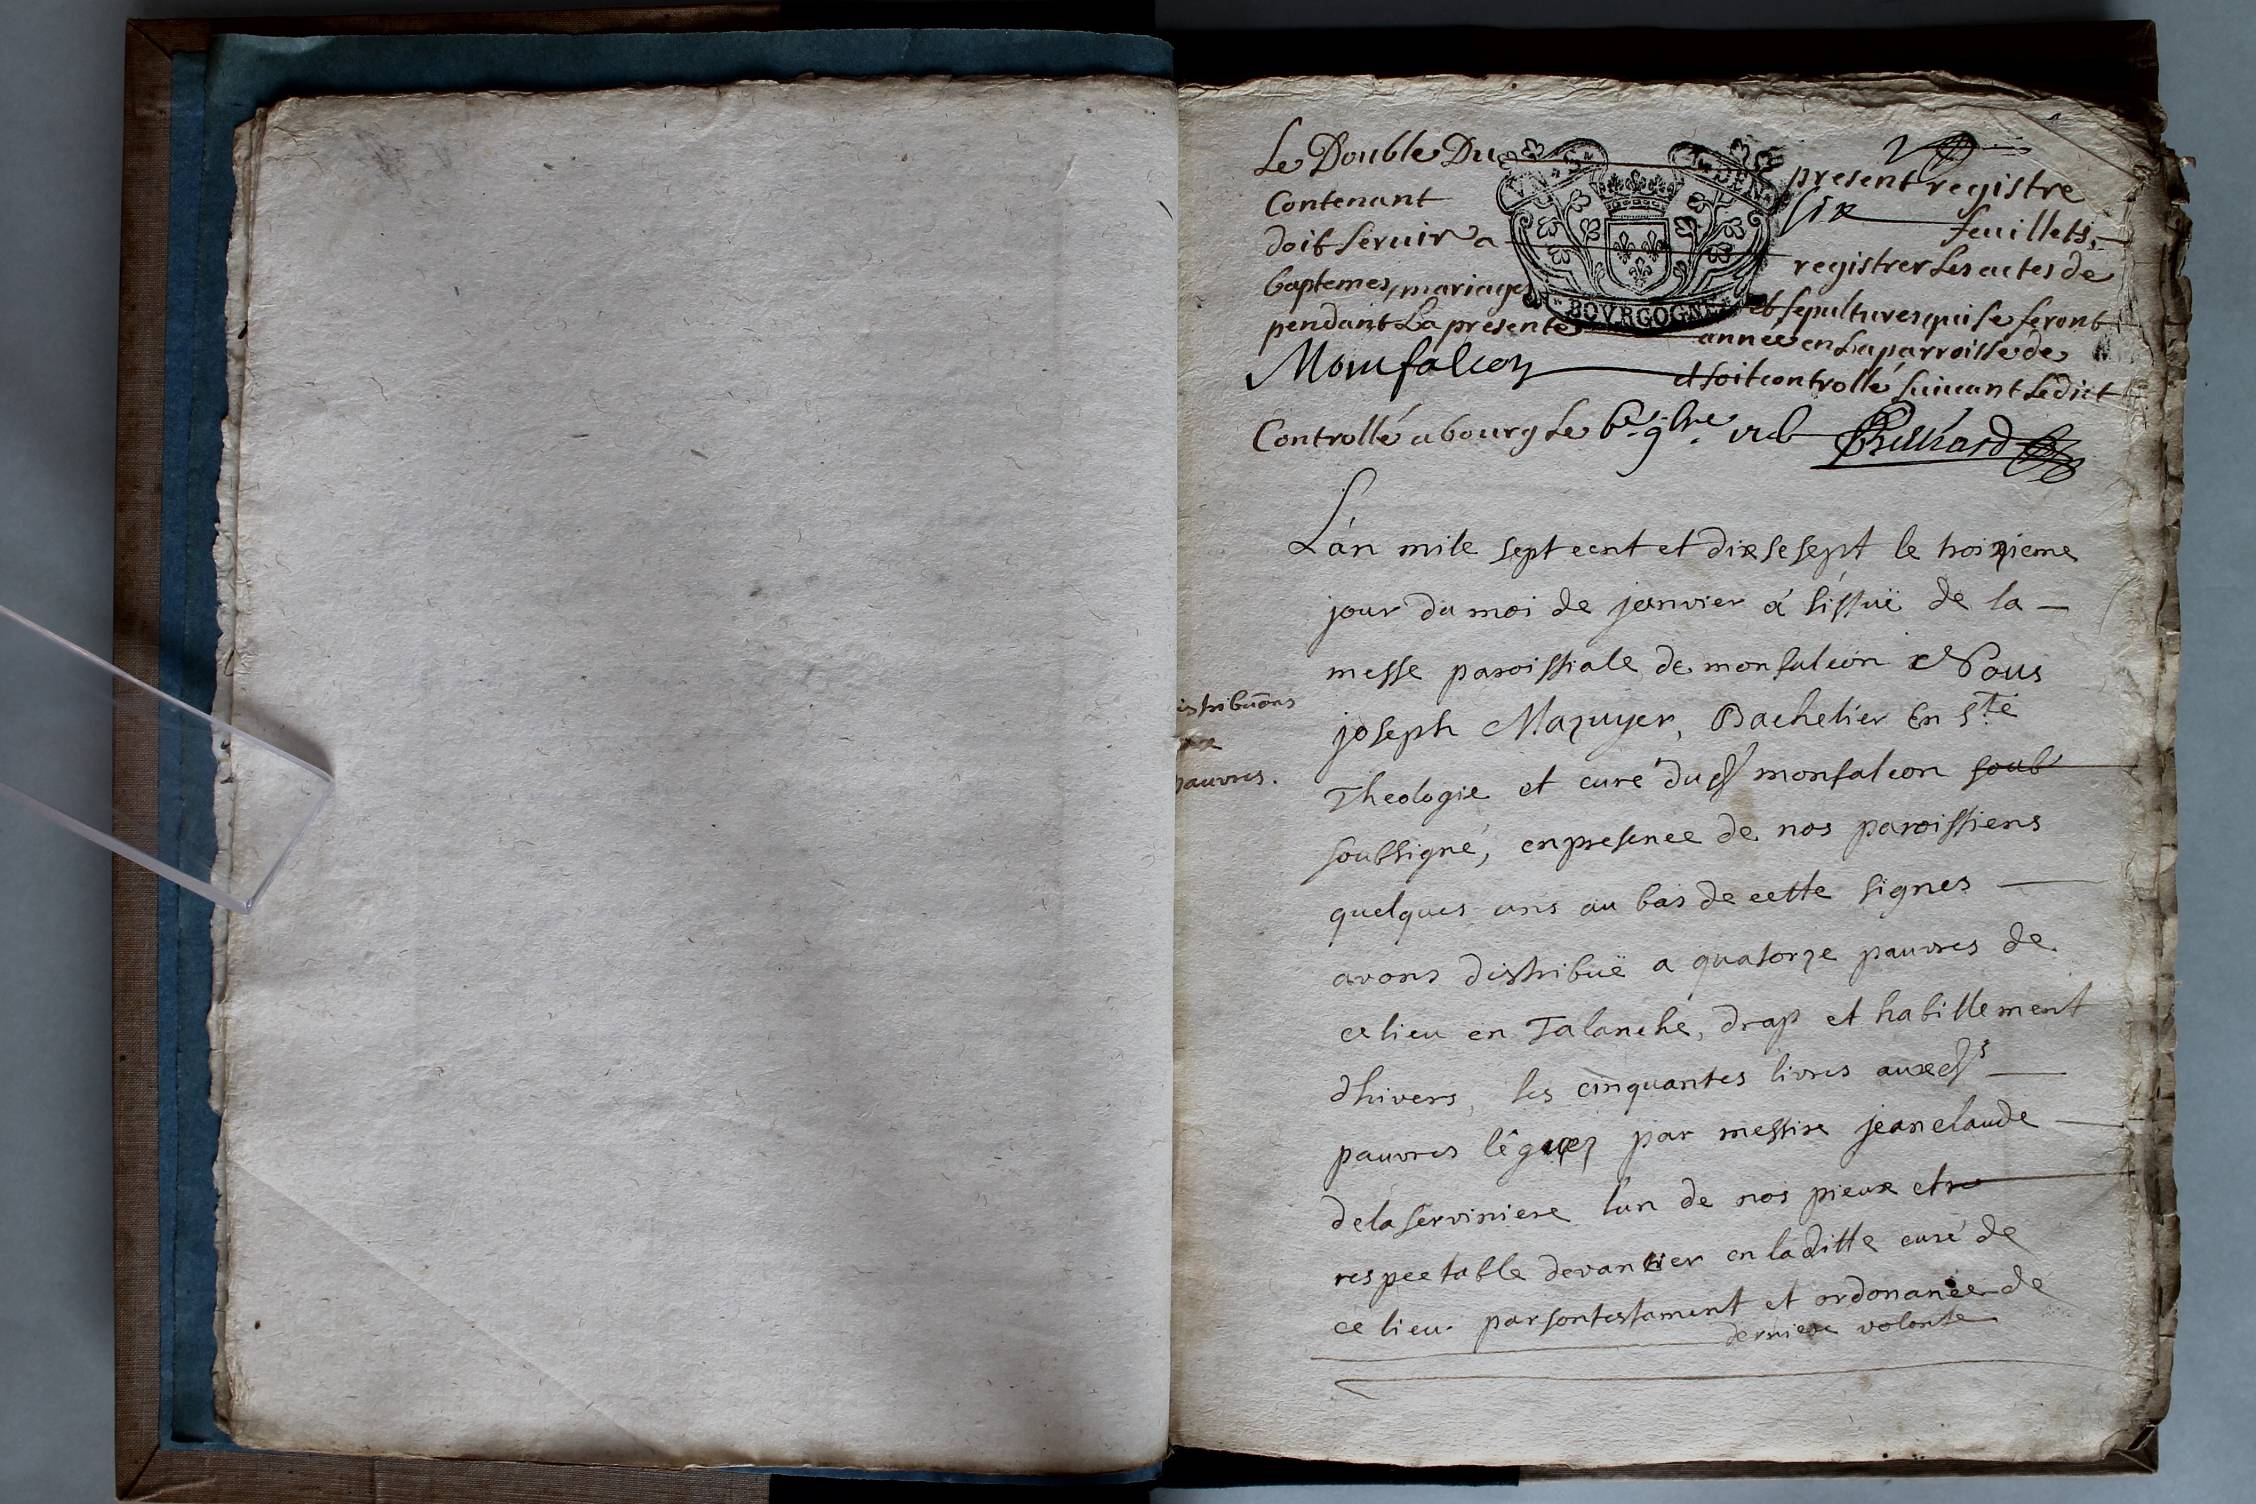 Le Double Du present registre
Contenant six feuillets,
doit servir a registrer les actes de
baptemes, mariages et sepultures qui se feront
pendant La presente année en La parroisse de
Monfalcon et soit controllé suivant Ledict
VN S. 4. DEN.
BOVRGOGNE
Controllé a bourg Le 6e 9bre
L'an mile sept cent et dixsesept le troizieme
jour du moi de janvier a l'issuë de la
messe paroissiale de monfalcon Nous
joseph Mazuyer, Bachelier En ste
Theologie et curé dud monfalcon soub
soubsigné, en presence de nos paroissiens
quelques uns au bas de cette signes
avons distribuë a quatorze pauvres de
ce lieu en Talanche, drap et habillement
dhivers, les cinquantes livres auxds
pauvres léguez par messire jean claude
de la serviniere l'un de nos pieux et re
respectable devantier en laditte cure de
ce lieu par son testament et ordonance de
derniere volonte
istribuõns
aux
pauvres.